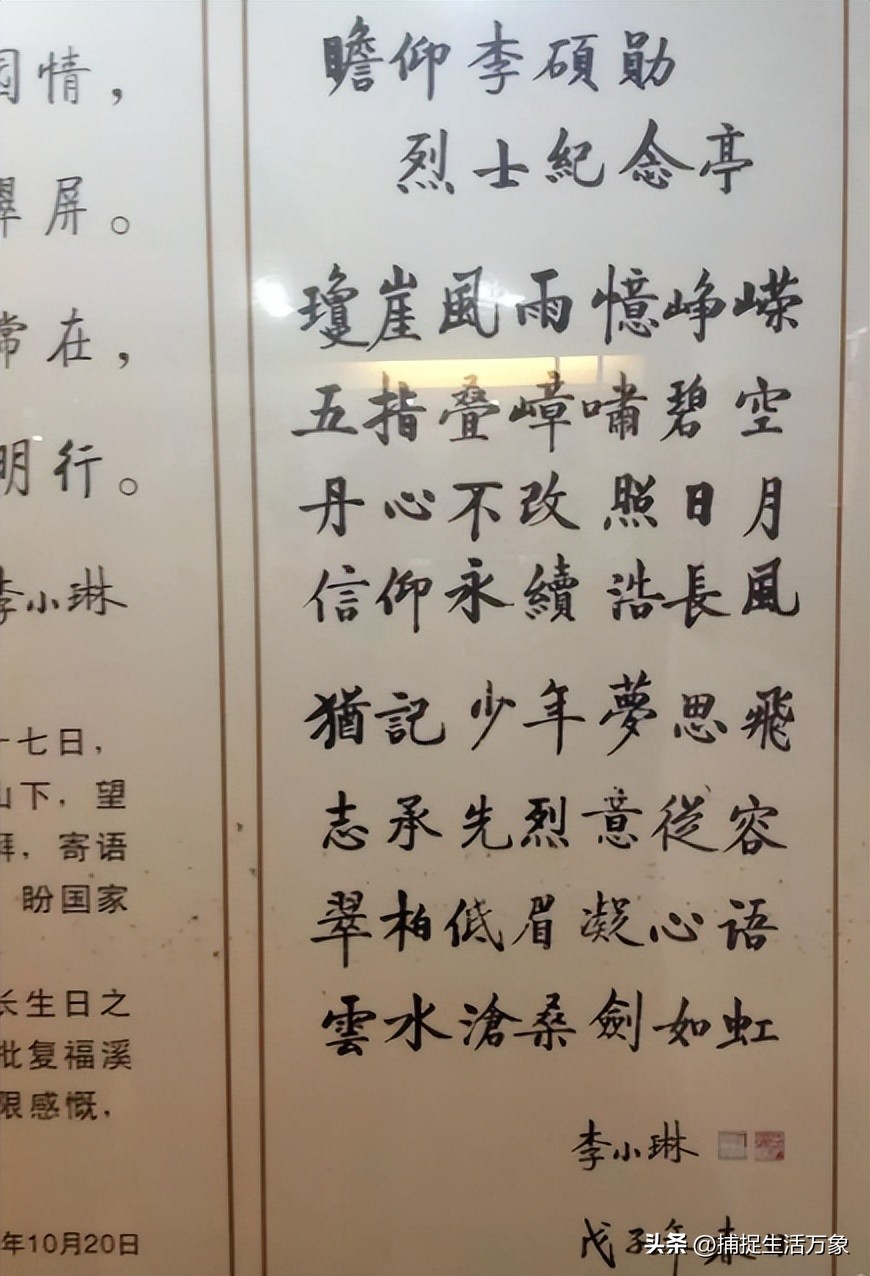 瞻仰李碩勛
烈士紀念亭
瓊崖風雨憶崢嶸
五指叠嶂嘯碧空
丹心不改照日月
信仰永續浩長風
猶記少年夢思飛
志承先烈意從容
翠柏低眉凝心語
雲水滄桑劍如虹
李小琳
戊子年春
国情，
翠屏。
常在，
明行。
李小琳
十七日，
山下，望
，寄语
盼国家
长生日之
批复福溪
限感慨，
年10月20日
头条 @捕捉生活万象